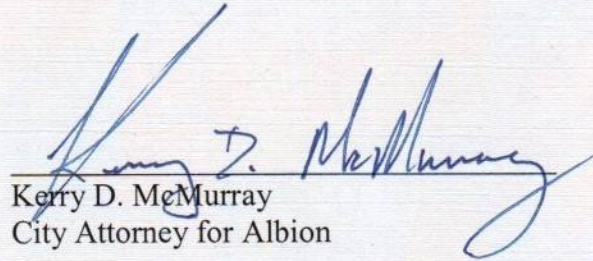 Kerry D. McMurray
Kerry D. McMurray
City Attorney for Albion